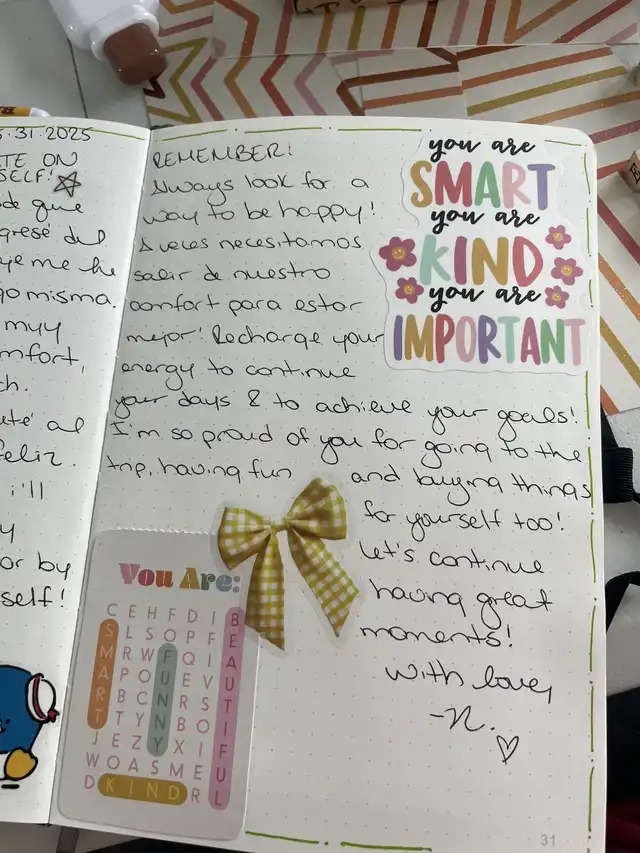 5-31-2025
TE ON
SELF!
de que
grese del
ye me he
go misma.
muy
mfort,
ch.
uté al
feliz.
i'll
y
or by
self!
REMEMBER!
Always look for a
way to be happy!
A veces necesitamos
salir de nuestro
comfort para estar
mejor! Recharge your
energy to continue
your days & to achieve your goals!
I'm so proud of you for going to the
trip, having fun and buying things
for yourself too!
Let's continue
having great
moments!
With love,
-N.
you are
SMART
you are
KIND
you are
IMPORTANT
You Are:
C E H F D I B
S L S O P F E
M R W F Q I A
A P O U E V U
R B C N R S T
T T Y N B O I
J E Z Y X I F
W O A S M E U
D K I N D R L
31